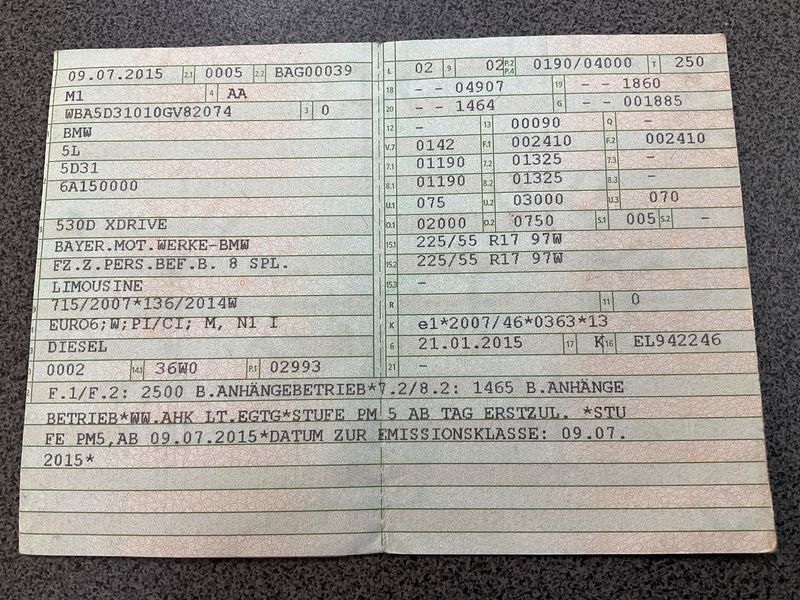 09.07.2015 2.1 0005 2.2 BAG00039
M1 4 AA
WBA5D31010GV82074 3 0
BMW
5L
5D31
6A150000
530D XDRIVE
BAYER.MOT.WERKE-BMW
FZ.Z.PERS.BEF.B. 8 SPL.
LIMOUSINE
715/2007*136/2014W
EURO6;W;PI/CI; M, N1 I
DIESEL
0002 14.1 36W0 P.1 02993
L 02 9 02 P.2 P.4 0190/04000 T 250
18 - - 04907 19 - - 1860
20 - - 1464 G - - 001885
12 - 13 00090 Q -
V.7 0142 F.1 002410 F.2 002410
7.1 01190 7.2 01325 7.3 -
8.1 01190 8.2 01325 8.3 -
U.1 075 U.2 03000 U.3 070
O.1 02000 O.2 0750 S.1 005 S.2 -
15.1 225/55 R17 97W
15.2 225/55 R17 97W
15.3 -
R 11 0
K e1*2007/46*0363*13
6 21.01.2015 17 K 16 EL942246
21 -
F.1/F.2: 2500 B.ANHÄNGEBETRIEB*7.2/8.2: 1465 B.ANHÄNGE
BETRIEB*WW.AHK LT.EGTG*STUFE PM 5 AB TAG ERSTZUL. *STU
FE PM5,AB 09.07.2015*DATUM ZUR EMISSIONSKLASSE: 09.07.
2015*